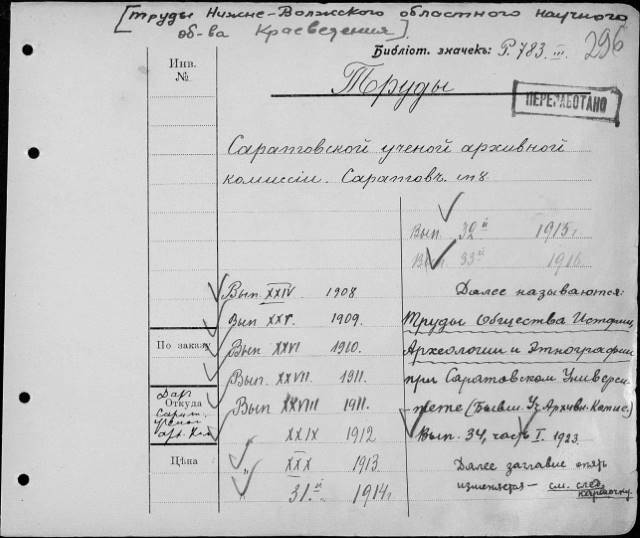 [Труды Нижне-Волжского областного научного
об-ва Краеведения].
Библіот. значекъ: Р.783. III.
296
Инв.
№
Труды
ПЕРЕРАБОТАНО
Саратовской ученой архивной
комиссіи. Саратовъ.
Вып. 32й 1915г
Вып 33й 1916
Вып. XXIV 1908
Вып. XXV. 1909.
Вып XXVI 1910.
Вып. XXVII. 1911.
Вып XXVIII 1911.
XXIX 1912
" XXX 1913.
" 31.й 1914г.
Далее называются:
Труды Общества Истории,
Археологии и Этнографии
при Саратовском Универси-
тете (Бывш. Уч. Архивн. Комис.)
Вып. 34, часть I. 1923.
Далее заглавие опять
изменяется – см. след.
карточку.
По заказу
Даръ
Откуда
Сарат.
ученой
арх. Ком.
Цѣна